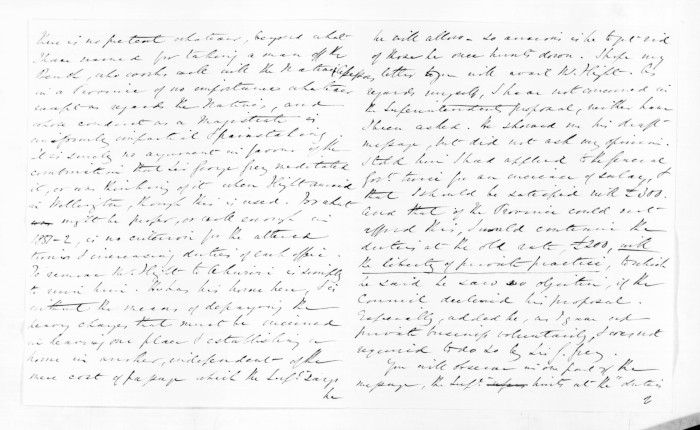 there is no pretext whatever, beyond what
I have named for taking a man off the
Bench, who works well with the Native Assessors,
in a Province of no importance whatever
except as regards the Natives, and
whose conduct as a Magistrate is
uniformly impartial & painstaking.
it is simply no argument in favor of the
combination that Sir George Grey meditated
it, or was thinking of it when Hight arrived
in Wellington, though this is used. For what
might be proper, or well enough in
1851-2, is no criterion for the altered
times & increasing duties of each office.
To remove Mr Hight to Ahuriri is simply
to ruin him. He has his home here, & is
without the means of defraying the
heavy charges that must be incurred
in leaving one place & establishing a
home in another, independent of the
mere cost of passage which the Supt. says
he
he will allow so anxious is he to get rid
of those he once hunts down. I hope my
letter to you will avail Mr Hight. As
regards myself, I have not concurred in
the Superintendent's proposal, neither have
I been asked. He showed me his draft
message, but did not ask my opinion.
I told him I had applied to the General
Govt. twice for an increase of salary, &
that I should be satisfied with £300.
And that if the Province could not
afford this, I would continue the
duties at the old rate, £200, with
the liberty of private practice, to which
he said he saw no objection, if the
Council declined his proposal.
Especially, added he, as I gave up
private business voluntarily, I was not
required to do so by Sir G. Grey.
You will observe in one part of the
message, the Supt. hints at the "duties